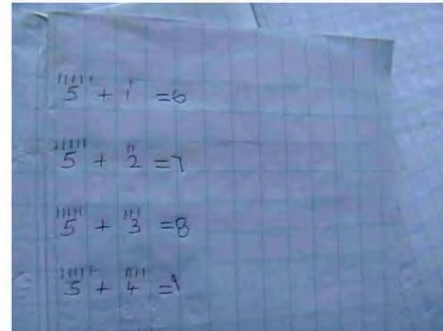 5 + 1 = 6
5 + 2 = 7
5 + 3 = 8
5 + 4 = 9